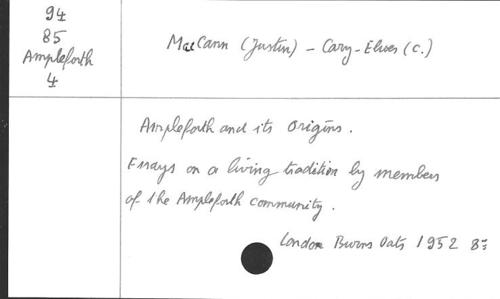 94
85
Ampleforth
4
MacCann (Justin) - Cary-Elwes (C.)
Ampleforth and its Origins.
Essays on a living tradition by members
of the Ampleforth community.
London Burns Oats 1952 8°